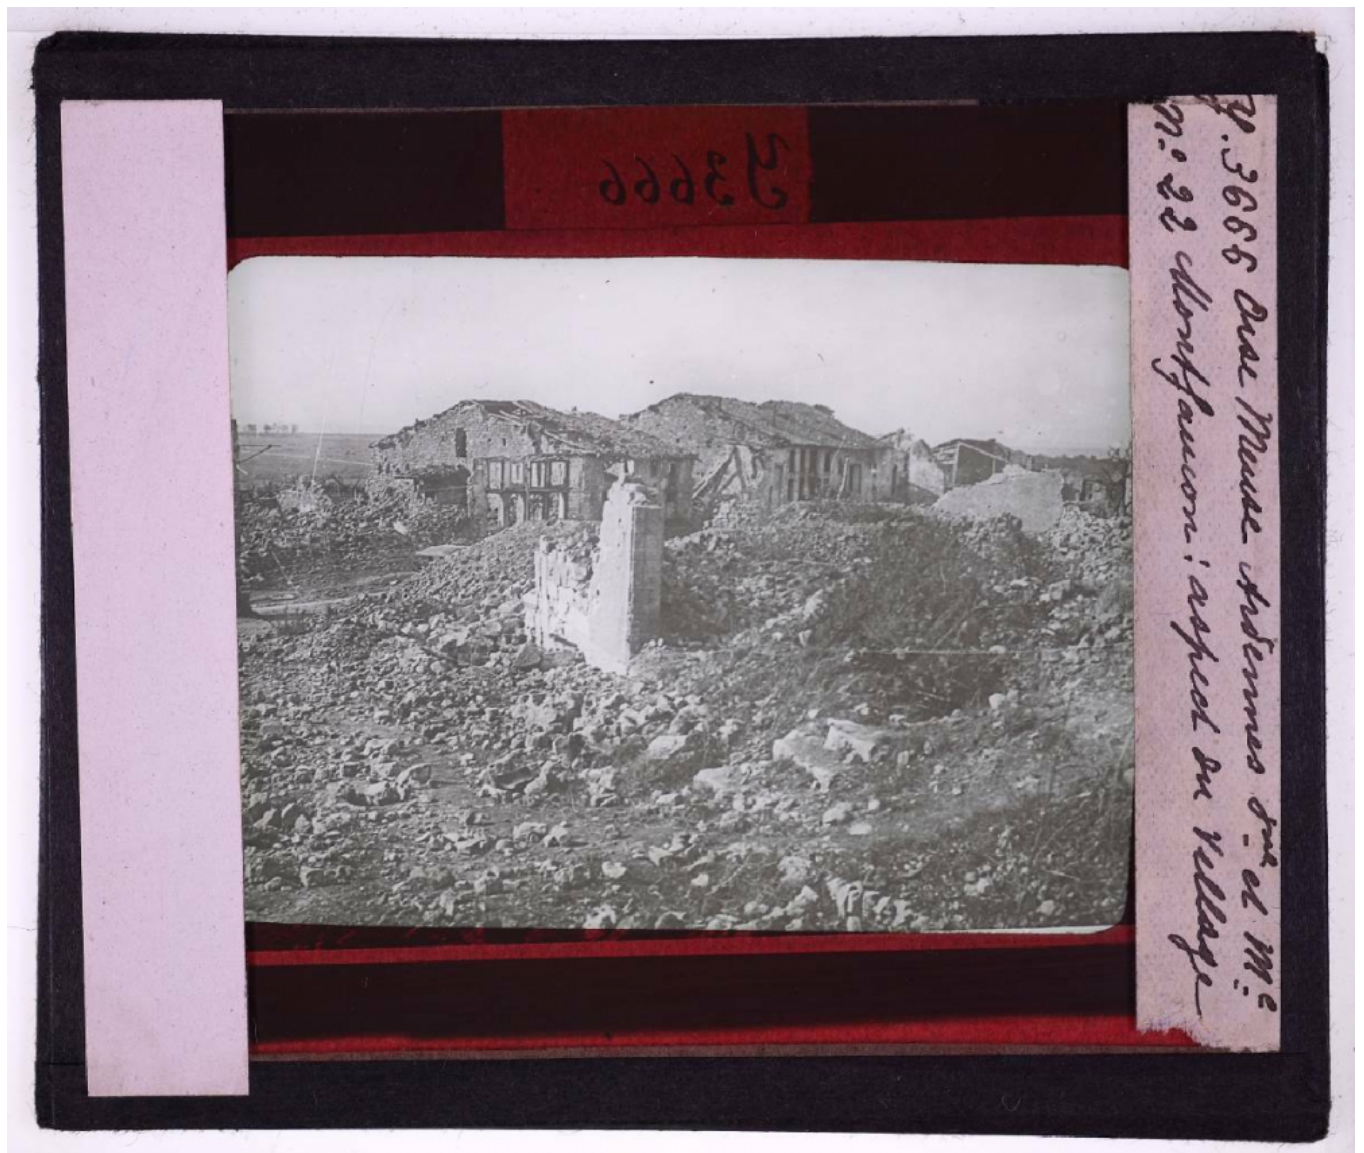 Y3666
Y. 3666 Oise Meuse Ardennes Sme et Me
No 22 Montfaucon: aspect du village